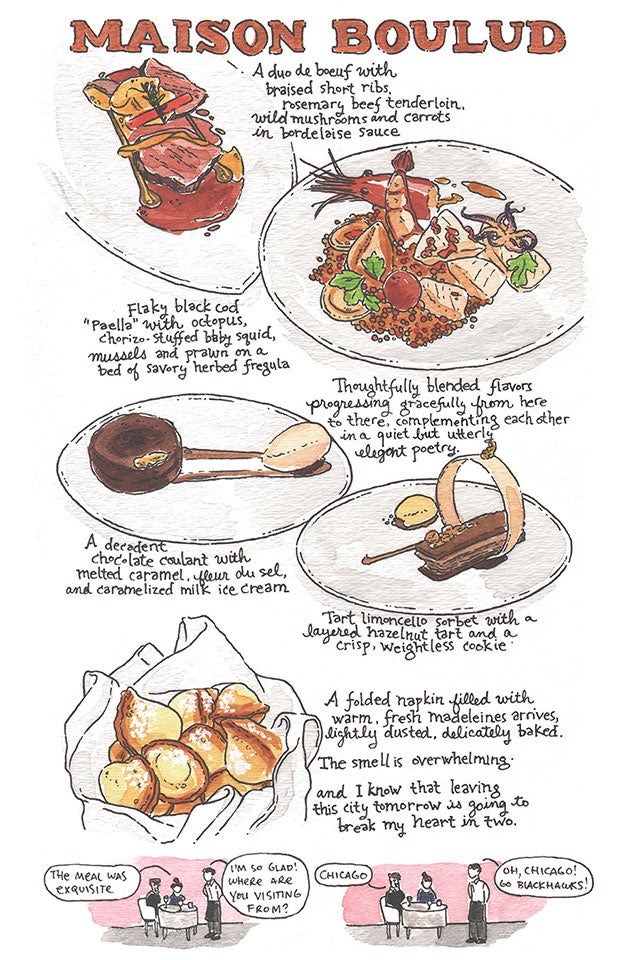 MAISON BOULUD
A duo de boeuf with
braised short ribs,
rosemary beef tenderloin,
wild mushrooms and carrots
in bordelaise sauce
Flaky black cod
"Paella" with octopus,
chorizo-stuffed baby squid,
mussels and prawn on a
bed of savory herbed fregula
Thoughtfully blended flavors
progressing gracefully from here
to there, complementing each other
in a quiet but utterly
elegant poetry.
A decadent
chocolate coulant with
melted caramel, fleur du sel,
and caramelized milk ice cream
Tart limoncello sorbet with a
layered hazelnut tart and a
crisp, weightless cookie.
A folded napkin filled with
warm, fresh madeleines arrives,
lightly dusted, delicately baked.
The smell is overwhelming.
and I know that leaving
this city tomorrow is going to
break my heart in two.
THE MEAL WAS
EXQUISITE
I'M SO GLAD!
WHERE ARE
YOU VISITING
FROM?
CHICAGO
OH, CHICAGO!
GO BLACKHAWKS!